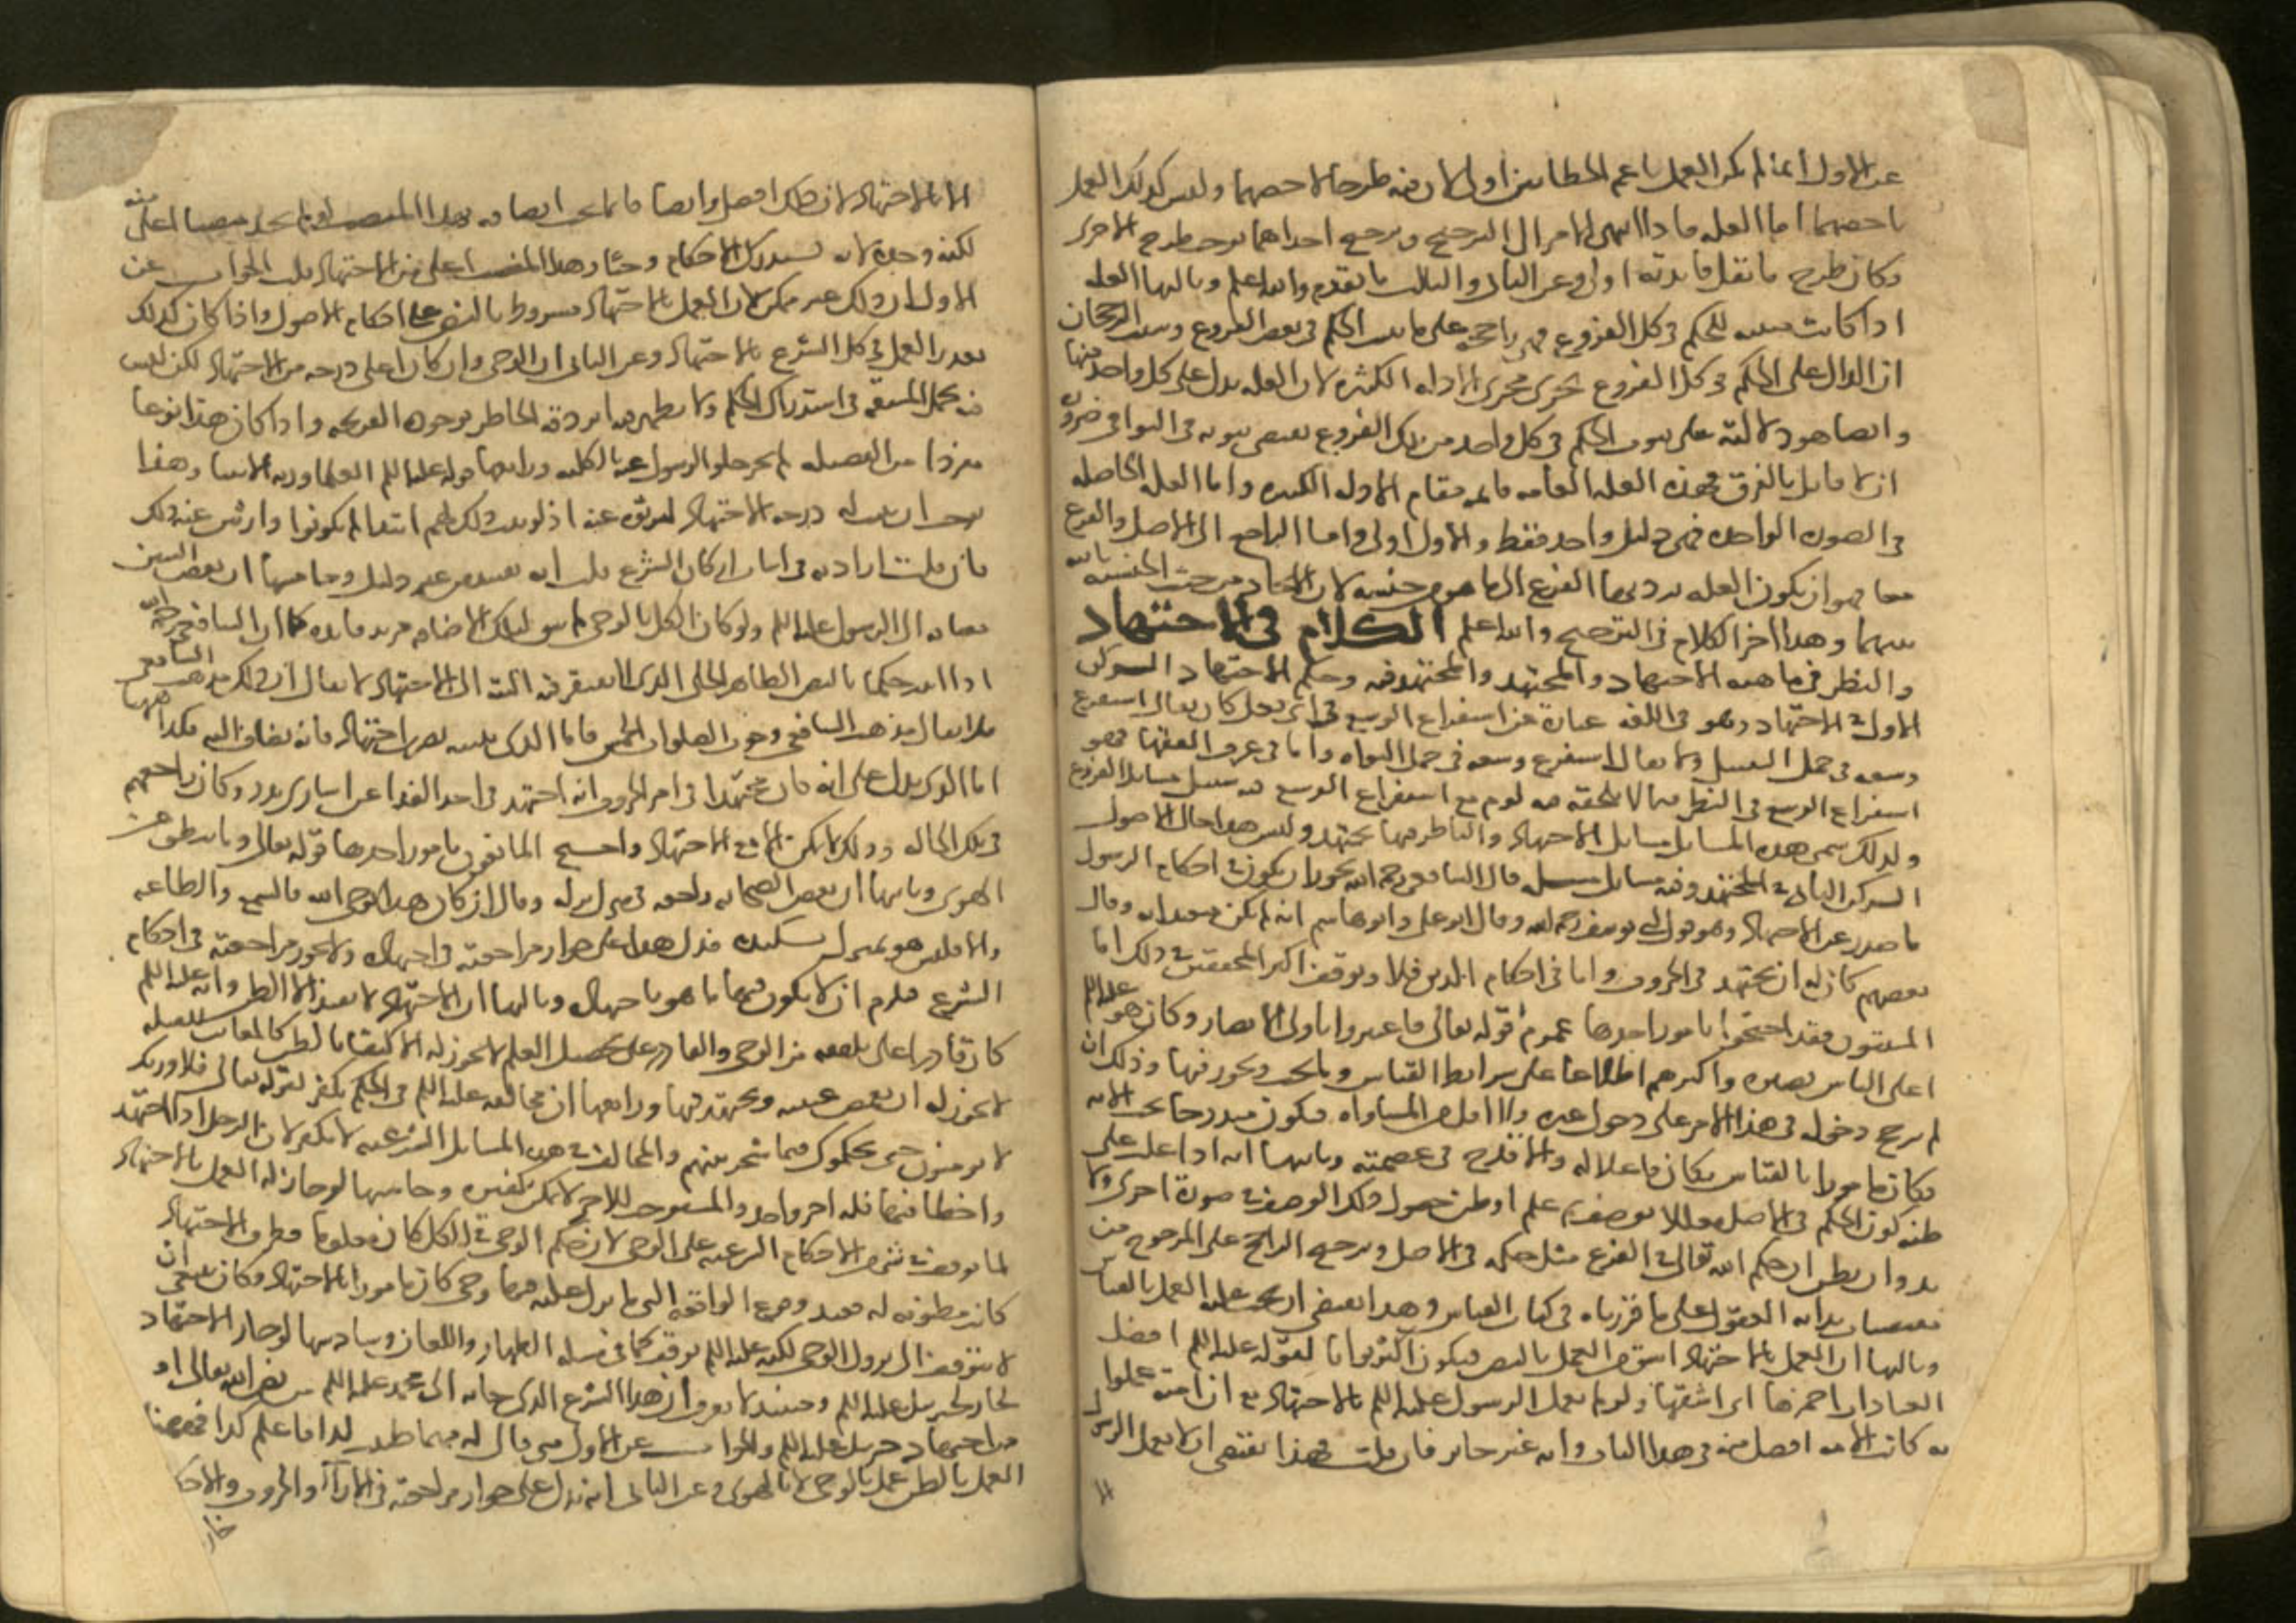 عن الاول انما لم يكن العمل باعم الخطابين اولى لان فيه طرحا لاخصهما وليس كذلك العمل
باخصهما اما العله فاذا انتهى الامر الى الترجيح وترجيح احداهما يوجب طرح الاخرى
وكان طرح ما تقل فايدته اولى وعن الثانى والثالث ما تقدم والله اعلم وثالثها العله
اذا كانت مثبته للحكم فى كل الفروع فهى راجحه على ما يثبت الحكم فى بعض الفروع وسبب الرجحان
ان الدال على الحكم فى كل الفروع يجرى مجرى الادله الكثيره لان العله تدل على كل واحد منها
وايضا هو دلالته على ثبوت الحكم فى كل واحد من تلك الفروع يقتضى ثبوته فى البواقى ضروره
ان لا قايل بالفرق فهذه العله العامه قايمه مقام الادله الكثيره واما العله الحاصله
فى الصوره الواحده فهى دليل واحد فقط والاول اولى واما الراجع الى الاصل والفرع
معا فهو ان يكون العله يرد بها الفرع الى ما هو من جنسه لان اتحاد من حيث الجنسيه ثابت
بينهما وهذا اخر الكلام فى الترجيح والله اعلم الكلام فى الاجتهاد
والنظر فى ماهيه الاجتهاد والمجتهد والمجتهد فيه وحكم الاجتهاد الركن
الاول فى الاجتهاد وهو فى اللغه عبارة عن استفراغ الوسع فى اى فعل كان يقال استفرغ
وسعه فى حمل الثقيل ولا يقال استفرغ وسعه فى حمل النواه واما فى عرف الفقها فهو
استفراغ الوسع فى النظر فيما لا يلحقه فيه لوم مع استفراغ الوسع فيه سبيل مسايل الفروع
ولذلك سمى هذه المسايل مسايل الاجتهاد والناظر فيها مجتهد وليس هذا حال الاصول
الركن الثانى فى المجتهد وفيه مسايل مسله قال الشافعى رحمه الله يجوز ان يكون فى احكام الرسول
ما صدر عن الاجتهاد وهو قول ابى يوسف رحمه الله وقال ابو على وابو هاشم انه لم يكن متعبدا به وقال
بعضهم كان له ان يجتهد فى الحروب واما فى احكام الدين فلا وتوقف اكثر المحققين فى ذلك اما
المثبتون فقد احتجوا بامور احدها عموم قوله تعالى فاعتبروا ياولى الابصار وكان هو عليه السلم
اعلى الناس بصيره واكثرهم اطلاعا على شرايط القياس وما يجب ويجوز فيها وذلك ان
لم يرجح دخوله فى هذا الامر على دخول غيره فلا اقل من المساواه فيكون مندرجا تحت الايه
فكان مامورا بالقياس فكان فاعلا له والا قدح فى عصمته وثانيها انه اذا غلب على
ظنه كون الحكم فى الاصل معللا بوصف ثم علم او ظن حصول ذلك الوصف فى صورة اخرى فلا
بد وان يظن ان حكم الله تعالى فى الفرع مثل حكمه فى الاصل وترجيح الراجح على المرجوح من
مقتضيات بداية العقول على ما قررناه فى كتاب القياس وهذا يقتضى ان يجب عليه العمل بالقياس
وثالثها ان العمل بالاجتهاد اشق من العمل بالنص فيكون اكثر ثوابا لقوله عليه السلم افضل
العبادات احمزها اى اشقها ولو لم يعمل الرسول عليه السلم بالاجتهاد مع ان امته عملوا
به كانت الامه افضل منه فى هذا الباب وانه غير جايز فان قلت فهذا يقتضى ان لا يعمل الرسول
الا بالاجتهاد لان ذلك افضل وايضا فانما يجب اتصافه بهذا المنصب لو لم يجد منصبا اعلى منه
لكنه وجده لانه يستدرك الاحكام وحيا وهذا المنصب اعلى من الاجتهاد قلت الجواب عن
الاول ان ذلك غير ممكن لان العمل بالاجتهاد مشروط بالنص على احكام الاصول واذا كان كذلك
تعذر العمل فى كل الشرع بالاجتهاد وعن الثانى ان الوحى وان كان اعلى درجه من الاجتهاد لكن ليس
فيه تحمل المشقه فى استدراك الحكم ولا يظهر فيه اثر دقة الخاطر وجوده القريحه واذا كان هذا نوعا
مفردا من الفضيله لم يجز خلو الرسول عنه بالكليه ورابعها قوله عليه السلم العلما ورثه الانبيا وهذا
يوجب ان يثبت له درجه الاجتهاد ليرثوه عنه اذ لو ثبت ذلك لهم ابتدا لم يكونوا وارثين عنه ذلك
فان قلت اراد به فى اثبات اركان الشرع قلت انه تقييد من غير دليل وخامسها ان بعض السنن
مضافه الى الرسول عليه السلم ولو كان الكل بالوحى لم يبق لتلك الاضافه مزيد فايده كما ان الشافعى رحمه الله
اذا اثبت حكما بالنص الظاهر الجلى الذى لا يفتقر فيه البته الى الاجتهاد لا يقال ان ذلك مذهب الشافعى
فلا يقال مذهب الشافعى وجوب الصلوات الخمس فاما الذى يثبته بضرب اجتهاد فانه يضاف اليه فكذا هاهنا
اما الذى يدل على انه كان مجتهدا فى امر الحروب انه اجتهد فى اخذ الفدا عن اسارى بدر وكان راجعهم
فى تلك الحاله وذلك لا يمكن الا مع الاجتهاد واحتج المانعون بامور احدها قوله تعالى وما ينطق عن
الهوى وثانيها ان بعض الصحابه راجعه فى منزل نزله وقال ان كان هذا بوحى الله فالسمع والطاعه
والا فليس هو بمنزل مكيده فدل هذا على جواز مراجعته فى اجتهاده ولا يجوز مراجعته فى احكام
الشرع فلزم ان لا يكون فيها ما هو باجتهاده وثالثها ان الاجتهاد لا يفيد الا الظن وانه عليه السلم
كان قادرا على تلقيه من الوحى والقادر على تحصيل العلم لا يجوز له الاكتفا بالظن كالمعاين للقبله
لا يجوز له ان يغمض عينيه ويجتهد فيها ورابعها ان مخالفه عليه السلم فى الحكم يكفر لقوله تعالى فلا وربك
لا يومنون حتى يحكموك فيما شجر بينهم والمخالف فى هذه المسايل الشرعيه لا يكفر لان الرجل اذا اجتهد
واخطا فيها فله اجر واحد والمستوجب للاجر لا يمكن تكفيره وخامسها لو جاز له العمل بالاجتهاد
لما توقف فى شى من الاحكام الشرعيه على الوحى لان حكم الوحى فى الكل كان معلوما وطرق الاجتهاد
كانت مظنونه له فعند وقوع الواقعه التى ما نزل عليه فيها وحى كان مامورا بالاجتهاد وكان ينبغى ان
لا يتوقف الى نزول الوحى لكنه عليه السلم توقف كما فى مسله الظهار واللعان وسادسها لو جاز الاجتهاد
لجاز لجبريل عليه السلم وحينئذ لا يعرف ان هذا الشرع الذى جا به الى محمد عليه السلم من نص الله تعالى او
من اجتهاد جبريل عليه السلم والجواب عن الاول متى قال له مهما ظننت كذا فاعلم كذا فههنا
العمل بالظن عمل بالوحى لا بالهوى وعن الثانى انه يدل على جواز مراجعته فى الارآ والحروب والاحكا